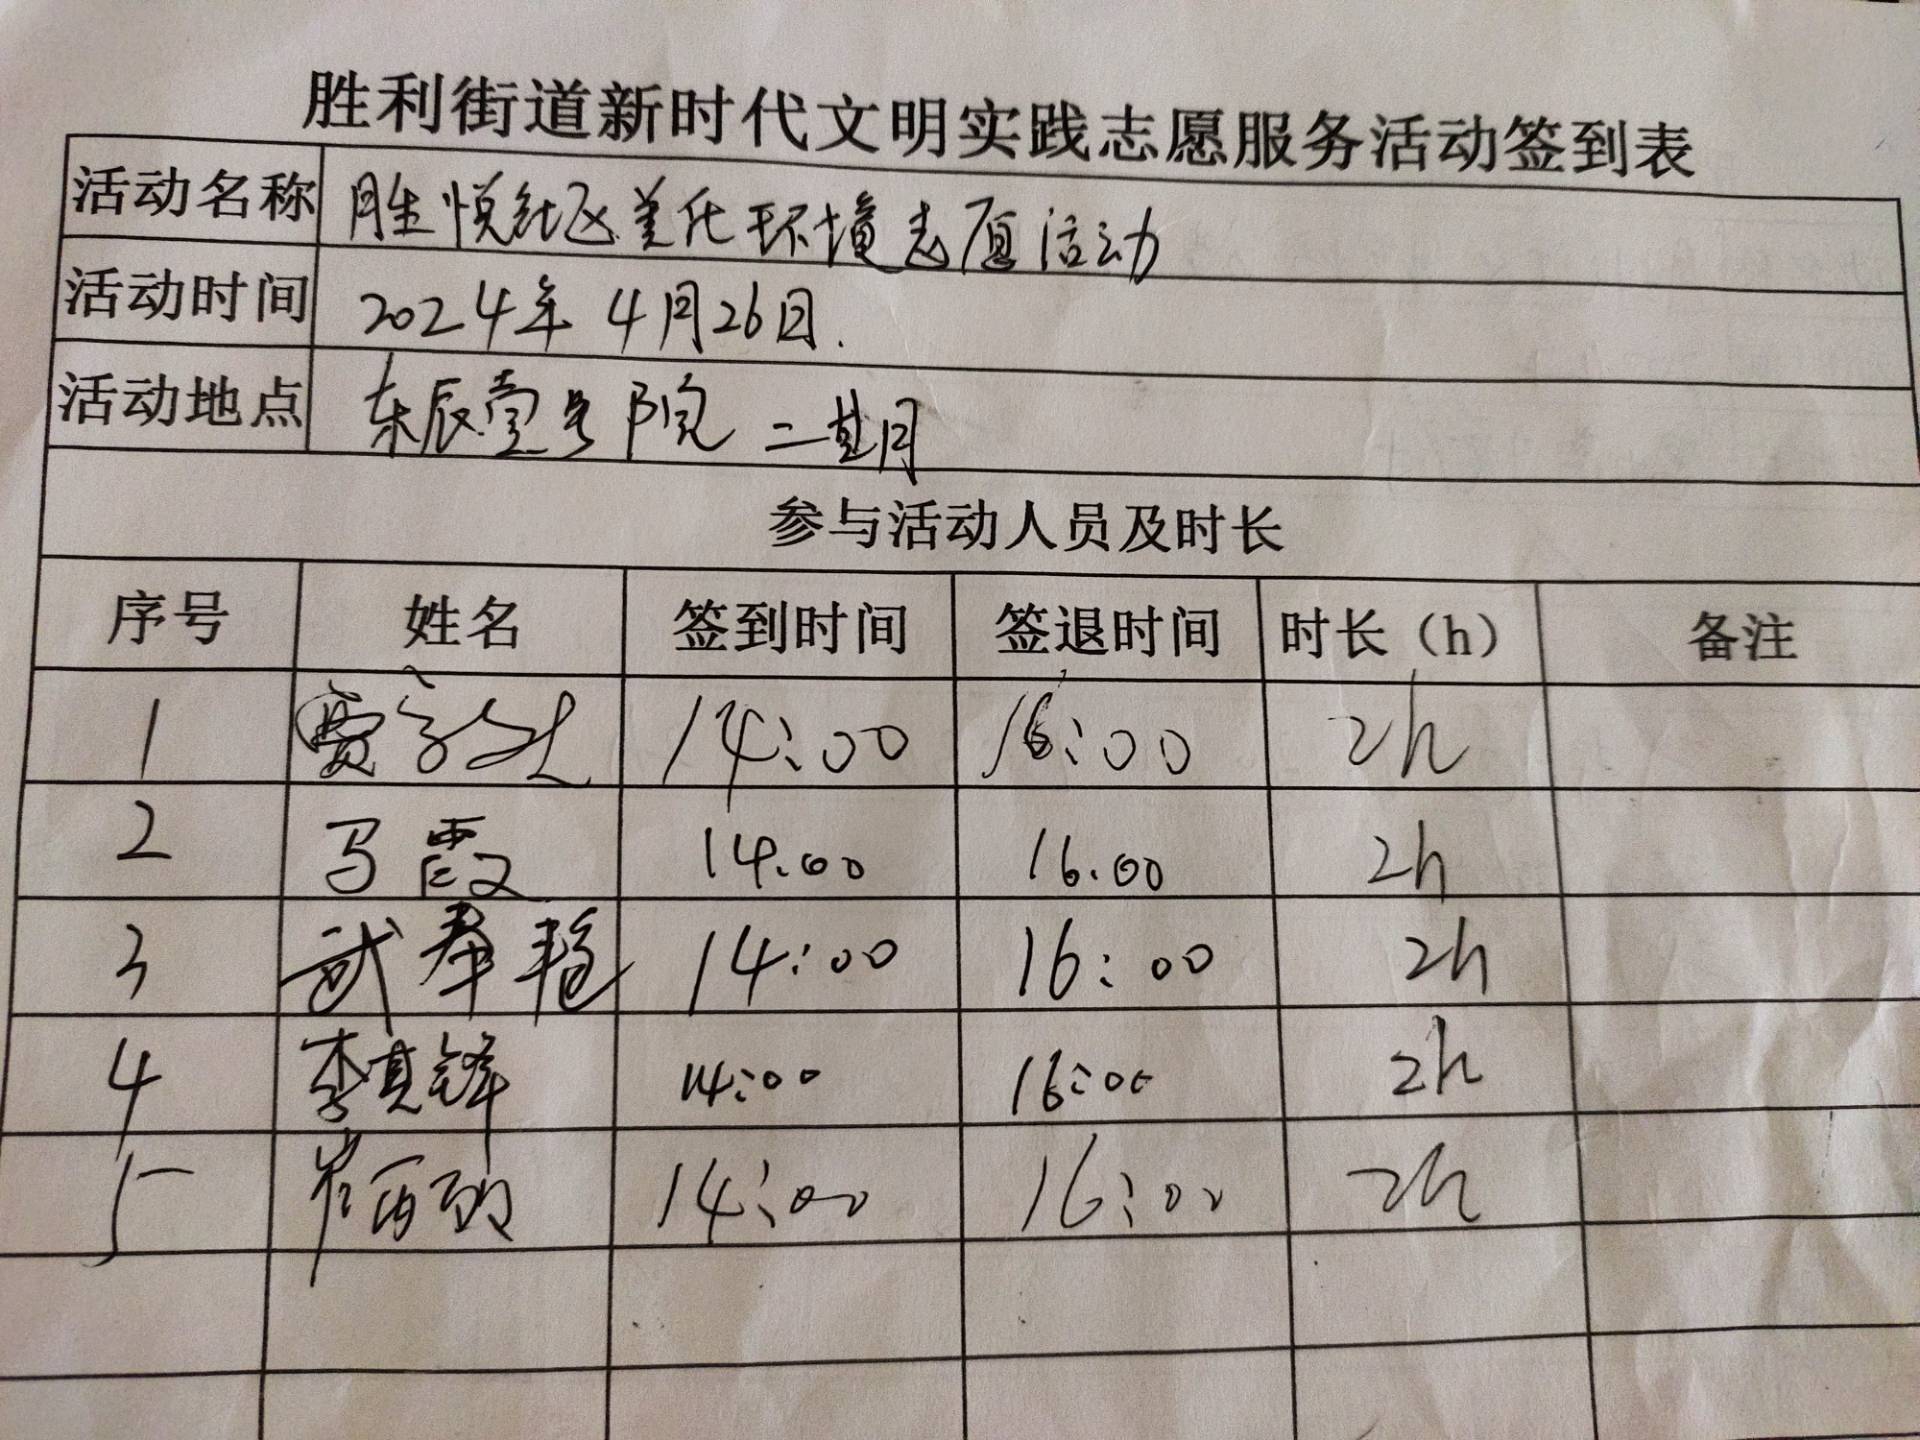 胜利街道新时代文明实践志愿服务活动签到表
活动名称 胜悦社区美化环境志愿活动
活动时间 2024年4月26日.
活动地点 东辰壹号院 二期
参与活动人员及时长
序号 姓名 签到时间 签退时间 时长（h） 备注
1 14:00 16:00 2h
2 马霞 14.00 16.00 2h
3 武春艳 14:00 16:00 2h
4 李其锋 14:00 16:00 2h
5 崔丽 14:00 16:00 2h